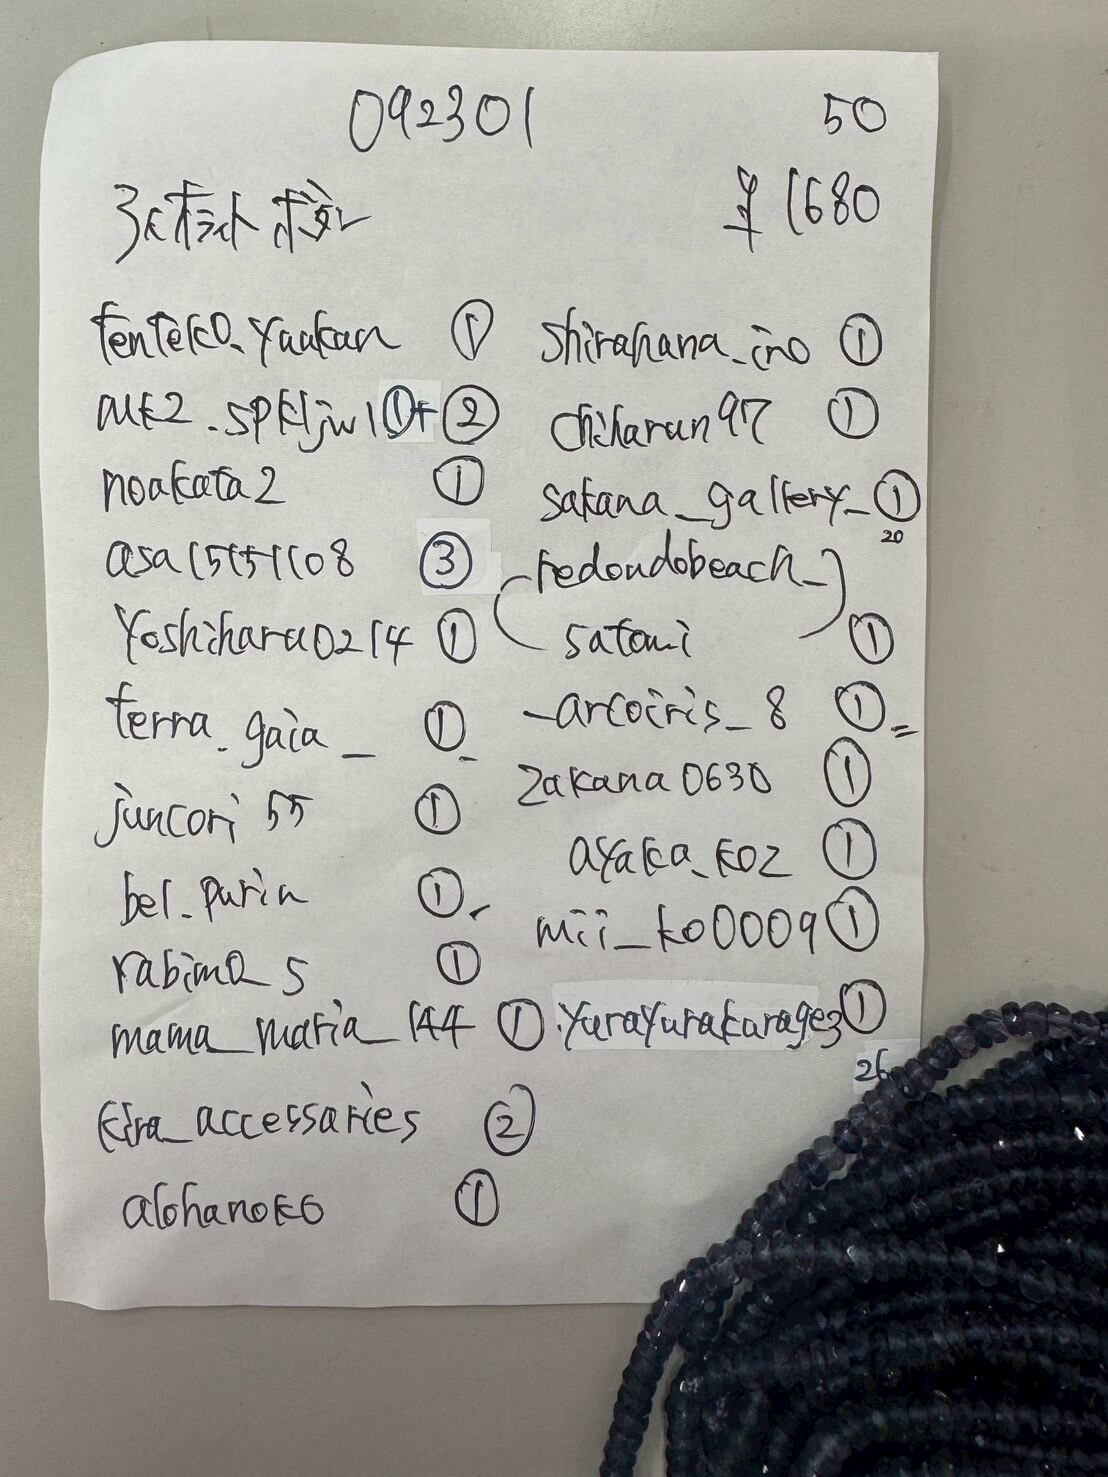 092301
50
¥1680
tenteko_yaakan ①
auk2_spkljw1 ①+②
noakata2 ①
asa15151108 ③
yoshiharu0214 ①
terra_gaia_ ①
juncori55 ①
bel_purin ①
rabima_s ①
mama_maria_144 ①
kira_accessaries ②
alohanoko ①
shirahana_ino ①
chiharun97 ①
sakana_gallery_ ①
20
(redondobeach_
satomi) ①
_arcoiris_8 ①
zakana0630 ①
ayaka_koz ①
mii_ko0009 ①
yurayurakurage3 ①
26